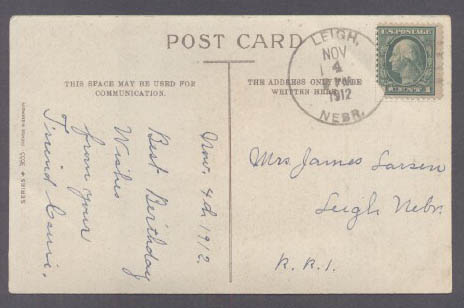 POST CARD
THIS SPACE MAY BE USED FOR
COMMUNICATION.
THE ADDRESS ONLY TO BE
WRITTEN HERE
LEIGH,
NOV
4
1912
NEBR.
U.S. POSTAGE
1 CENT 1
Nov. 4th 1912.
Best Birthday
Wishes
from your
Friend
Mrs James Larsen
Leigh Nebr.
R.R.1.
SERIES